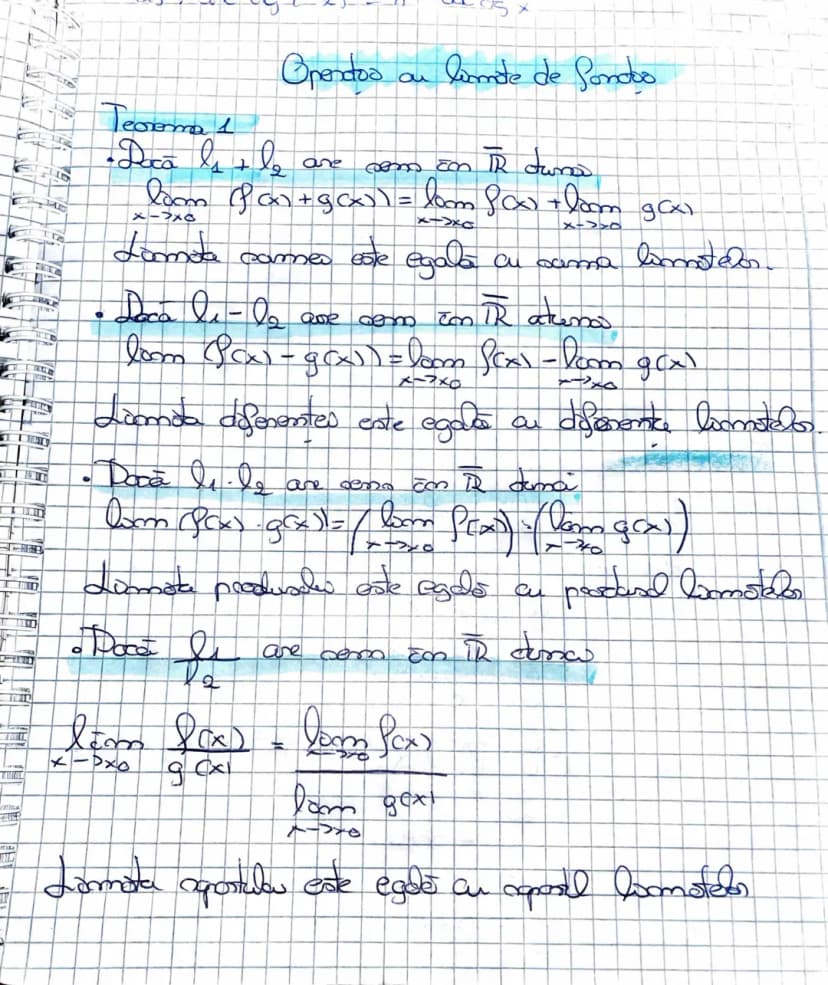 Operații cu limite de funcții
Teorema 1
• Dacă l₁ + l₂ are sens în R̅ atunci
lim (f(x) + g(x)) = lim f(x) + lim g(x)
x->x₀ x->x₀ x->x₀
Limita sumei este egală cu suma limitelor.
• Dacă l₁ - l₂ are sens în R̅ atunci
lim (f(x) - g(x)) = lim f(x) - lim g(x)
x->x₀ x->x₀
Limita diferenței este egală cu diferența limitelor.
• Dacă l₁ · l₂ are sens în R̅ atunci
lim (f(x) · g(x)) = (lim f(x)) · (lim g(x))
x->x₀ x->x₀
Limita produsului este egală cu produsul limitelor
• Dacă l₁/l₂ are sens în R̅ atunci
lim f(x)/g(x) = lim f(x)
x->x₀ x->x₀
lim g(x)
x->x₀
Limita raportului este egală cu raportul limitelor